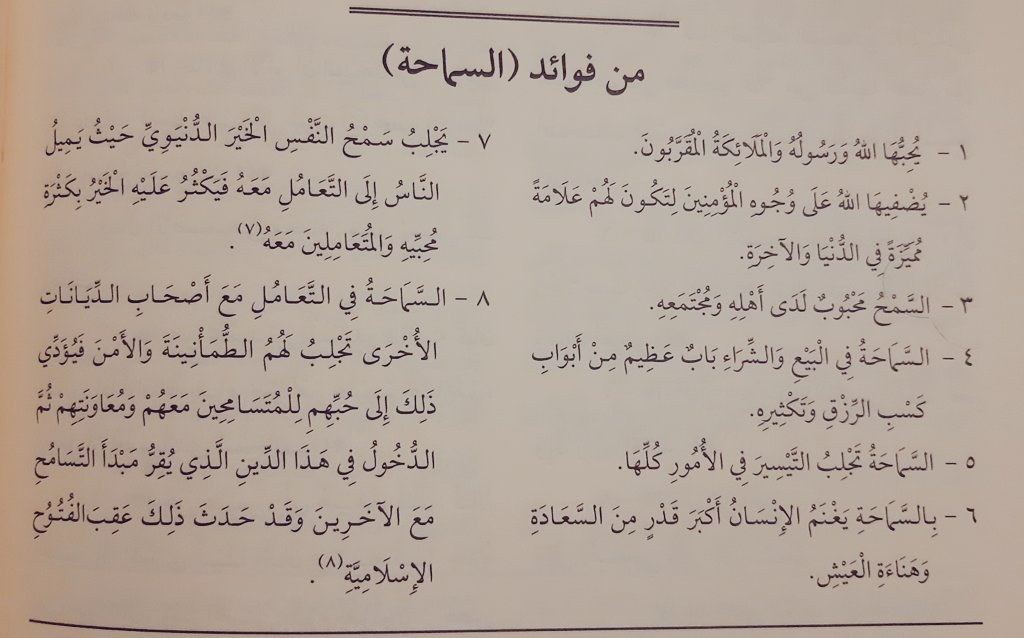 من فوائد (السماحة)
١ - يُحِبُّهَا اللهُ وَرَسُولُهُ وَالْمَلَائِكَةُ الْمُقَرَّبُونَ.
٢ - يُضْفِيهَا اللهُ عَلَى وُجُوهِ الْمُؤْمِنِينَ لِتَكُونَ لَهُمْ عَلَامَةً
مُمَيِّزَةً فِي الدُّنْيَا وَالآخِرَةِ.
٣ - السَّمْحُ مَحْبُوبٌ لَدَى أَهْلِهِ وَمُجْتَمَعِهِ.
٤ - السَّمَاحَةُ فِي الْبَيْعِ وَالشِّرَاءِ بَابٌ عَظِيمٌ مِنْ أَبْوَابِ
كَسْبِ الرِّزْقِ وَتَكْثِيرِهِ.
٥ - السَّمَاحَةُ تَجْلِبُ التَّيْسِيرَ فِي الأُمُورِ كُلِّهَا.
٦ - بِالسَّمَاحَةِ يَغْنَمُ الإِنْسَانُ أَكْبَرَ قَدْرٍ مِنَ السَّعَادَةِ
وَهَنَاءَةِ الْعَيْشِ.
٧ - يَجْلِبُ سَمْحُ النَّفْسِ الْخَيْرَ الدُّنْيَوِيَّ حَيْثُ يَمِيلُ
النَّاسُ إِلَى التَّعَامُلِ مَعَهُ فَيَكْثُرُ عَلَيْهِ الْخَيْرُ بِكَثْرَةِ
مُحِبِّيهِ وَالْمُتَعَامِلِينَ مَعَهُ(٧).
٨ - السَّمَاحَةُ فِي التَّعَامُلِ مَعَ أَصْحَابِ الدِّيَانَاتِ
الأُخْرَى تَجْلِبُ لَهُمُ الطُّمَأْنِينَةَ وَالأَمْنَ فَيُؤَدِّي
ذَلِكَ إِلَى حُبِّهِم لِلْمُتَسَامِحِينَ مَعَهُمْ وَمُعَاوَنَتِهِمْ ثُمَّ
الدُّخُولُ فِي هَذَا الدِّينِ الَّذِي يُقِرُّ مَبْدَأَ التَّسَامُحِ
مَعَ الآخَرِينَ وَقَدْ حَدَثَ ذَلِكَ عَقِبَ الفُتُوُحِ
الإِسْلَامِيَّةِ(٨).